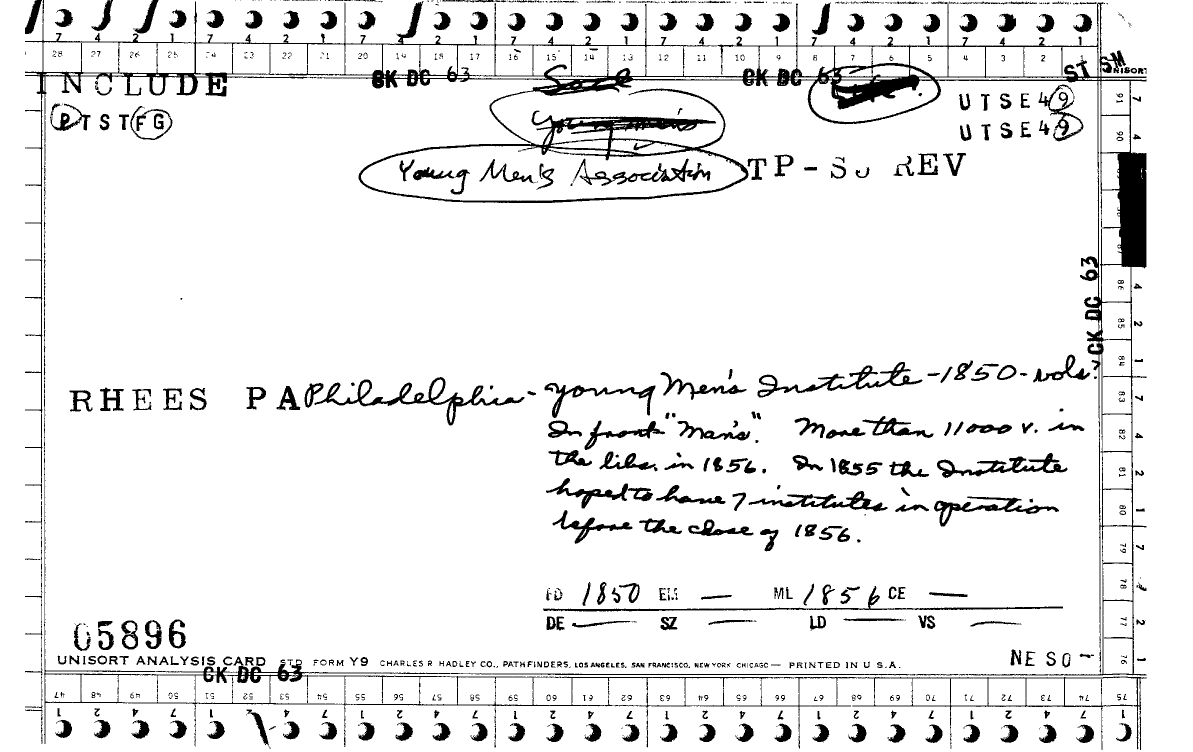 7 4 2 1 7 4 2 1 7 4 2 1 7 4 2 1 7 4 2 1 7 4 2 1 7 4 2 1
28 27 26 25 24 23 22 21 20 19 18 17 16 15 14 13 12 11 10 9 8 7 6 5 4 3 2 1
INCLUDE CK DC 63 CK DC 63 ST SM
PTSTFG Young men's UTSE49
UTSE49
Young Men's Association TP-SO REV
CK DC 63
RHEES PA Philadelphia - Young Men's Institute - 1850 - vols?
In front "Man's". More than 11000 v. in
the libs. in 1856. In 1855 the Institute
hoped to have 7 institutes in operation
before the close of 1856.
FD 1850 EM — ML 1856 CE —
DE — SZ LD — VS —
05896
UNISORT ANALYSIS CARD STD FORM Y9 CHARLES R HADLEY CO., PATHFINDERS, LOS ANGELES, SAN FRANCISCO, NEW YORK CHICAGO — PRINTED IN U S A.
NE SO -
CK DC 63
47 48 49 50 51 52 53 54 55 56 57 58 59 60 61 62 63 64 65 66 67 68 69 70 71 72 73 74 75
1 2 4 7 1 2 4 7 1 2 4 7 1 2 4 7 1 2 4 7 1 2 4 7 1 2 4 7 1